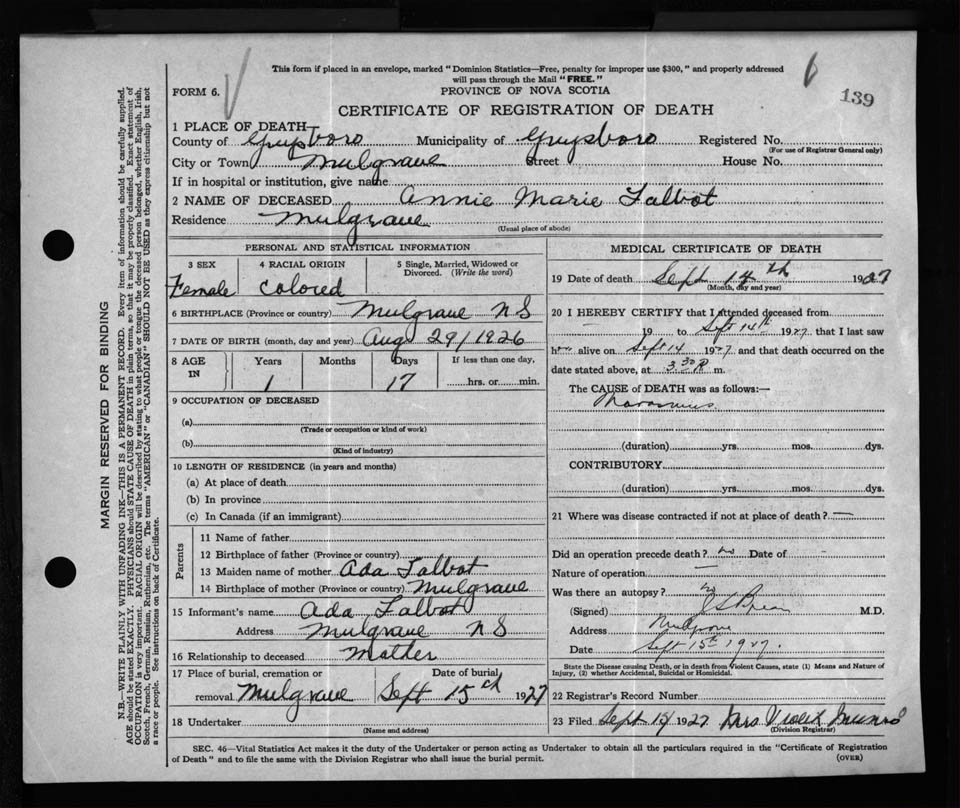 This form if placed in an envelope, marked "Dominion Statistics—Free, penalty for improper use $300," and properly addressed
will pass through the Mail "FREE."
6
139
FORM 6.
PROVINCE OF NOVA SCOTIA
CERTIFICATE OF REGISTRATION OF DEATH
1 PLACE OF DEATH—
County of Guysboro Municipality of Guysboro Registered No.
(For use of Registrar General only)
City or Town Mulgrave Street House No.
If in hospital or institution, give name
2 NAME OF DECEASED Annie Marie Talbot
Residence Mulgrave
(Usual place of abode)
PERSONAL AND STATISTICAL INFORMATION
3 SEX 4 RACIAL ORIGIN 5 Single, Married, Widowed or
Divorced. (Write the word)
Female Colored
6 BIRTHPLACE (Province or country) Mulgrave N S
7 DATE OF BIRTH (month, day and year) Aug 29/1926
8 AGE IN Years Months Days If less than one day,
1 17 hrs. or min.
9 OCCUPATION OF DECEASED
(a)
(Trade or occupation or kind of work)
(b)
(Kind of industry)
10 LENGTH OF RESIDENCE (in years and months)
(a) At place of death
(b) In province
(c) In Canada (if an immigrant)
Parents
11 Name of father
12 Birthplace of father (Province or country)
13 Maiden name of mother Ada Talbot
14 Birthplace of mother (Province or country) Mulgrave
15 Informant's name Ada Talbot
Address Mulgrave N S
16 Relationship to deceased Mother
17 Place of burial, cremation or Date of burial
removal Mulgrave Sept 15th 1927
18 Undertaker
(Name and address)
MEDICAL CERTIFICATE OF DEATH
19 Date of death Sept 14th 1927
(Month, day and year)
20 I HEREBY CERTIFY that I attended deceased from
19 to Sept 14th 1927, that I last saw
h alive on Sept 14 1927 and that death occurred on the
date stated above, at 3.30 P m.
The CAUSE of DEATH was as follows:—
Marasmus
(duration) yrs. mos. dys.
CONTRIBUTORY
(duration) yrs. mos. dys.
21 Where was disease contracted if not at place of death? —
Did an operation precede death? no Date of
Nature of operation —
Was there an autopsy? no
(Signed) M.D.
Address Mulgrave
Date Sept 15th 1927.
State the Disease causing Death, or in death from Violent Causes, state (1) Means and Nature of
Injury, (2) whether Accidental, Suicidal or Homicidal.
22 Registrar's Record Number
23 Filed Sept 15/1927 Mrs Violet Munro
(Division Registrar)
SEC. 46—Vital Statistics Act makes it the duty of the Undertaker or person acting as Undertaker to obtain all the particulars required in the "Certificate of Registration
of Death" and to file the same with the Division Registrar who shall issue the burial permit. (OVER)
MARGIN RESERVED FOR BINDING
N.B.—WRITE PLAINLY WITH UNFADING INK—THIS IS A PERMANENT RECORD. Every item of information should be carefully supplied.
AGE should be stated EXACTLY. PHYSICIANS should STATE CAUSE OF DEATH in plain terms, so that it may be properly classified. Exact statement of
OCCUPATION is very important. RACIAL ORIGIN will be described by stating to what people or tongue the deceased person belonged, whether English, Irish,
Scotch, French, German, Russian, Ruthenian, etc. The terms "AMERICAN" or "CANADIAN" SHOULD NOT BE USED as they express citizenship but not
a race or people. See instructions on back of Certificate.